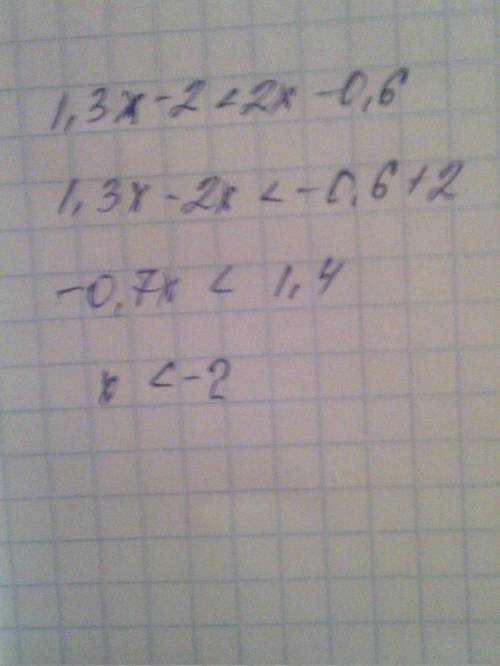 1,3x - 2 < 2x - 0,6
1,3x - 2x < -0,6 + 2
-0,7x < 1,4
x < -2